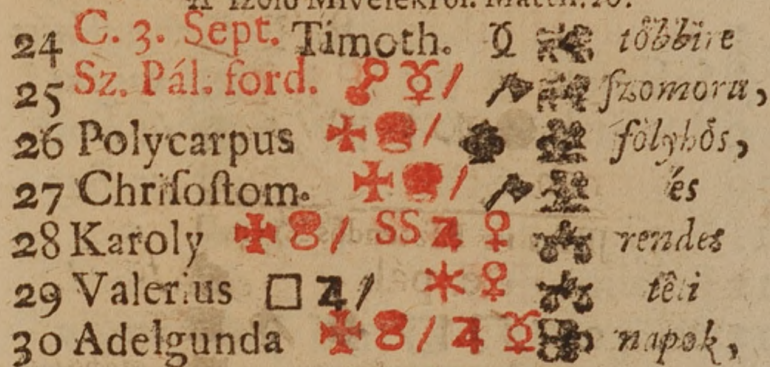 A' Izölö Mivelekröl. Matth. 20.
24 C. 3. Sept. Timoth. ☿ többire
25 Sz. Pál. ford. ☍ ☿ / szomoru,
26 Polycarpus / fölyhös,
27 Chriſoſtom. / és
28 Karoly / SS ♃ ♀ rendes
29 Valerius □ ♃ / ✶ ♀ téli
30 Adelgunda / ♃ ☿ napok,